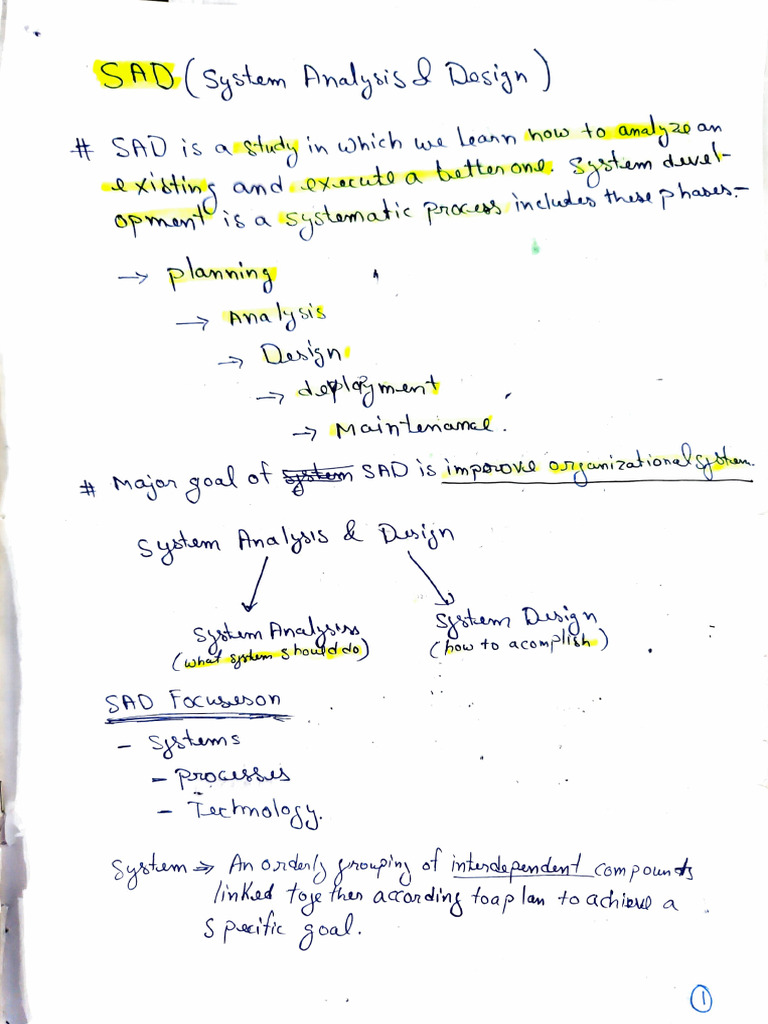 SAD (System Analysis & Design)
# SAD is a study in which we learn how to analyze an
existing and execute a better one. System devel-
opment is a systematic process includes these phases:-
→ planning
→ Analysis
→ Design
→ deployment
→ Maintenance.
# Major goal of system SAD is improve organizational system.
System Analysis & Design
System Analysis System Design
(what system should do) (how to acomplish)
SAD Focuseson
- Systems
- Processes
- Technology.
System ⇒ An orderly grouping of interdependent compounts
linked together according to a plan to achieve a
specific goal.
1